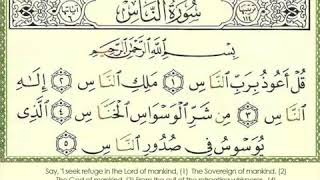 سُورَةُ النَّاسِ
بِسْمِ اللَّهِ الرَّحْمَٰنِ الرَّحِيمِ
قُلْ أَعُوذُ بِرَبِّ النَّاسِ ١ مَلِكِ النَّاسِ ٢ إِلَٰهِ
النَّاسِ ٣ مِن شَرِّ الْوَسْوَاسِ الْخَنَّاسِ ٤ الَّذِي
يُوَسْوِسُ فِي صُدُورِ النَّاسِ ٥
Say, "I seek refuge in the Lord of mankind, (1) The Sovereign of mankind. (2)
The God of mankind, (3) From the evil of the retreating whisperer- (4)